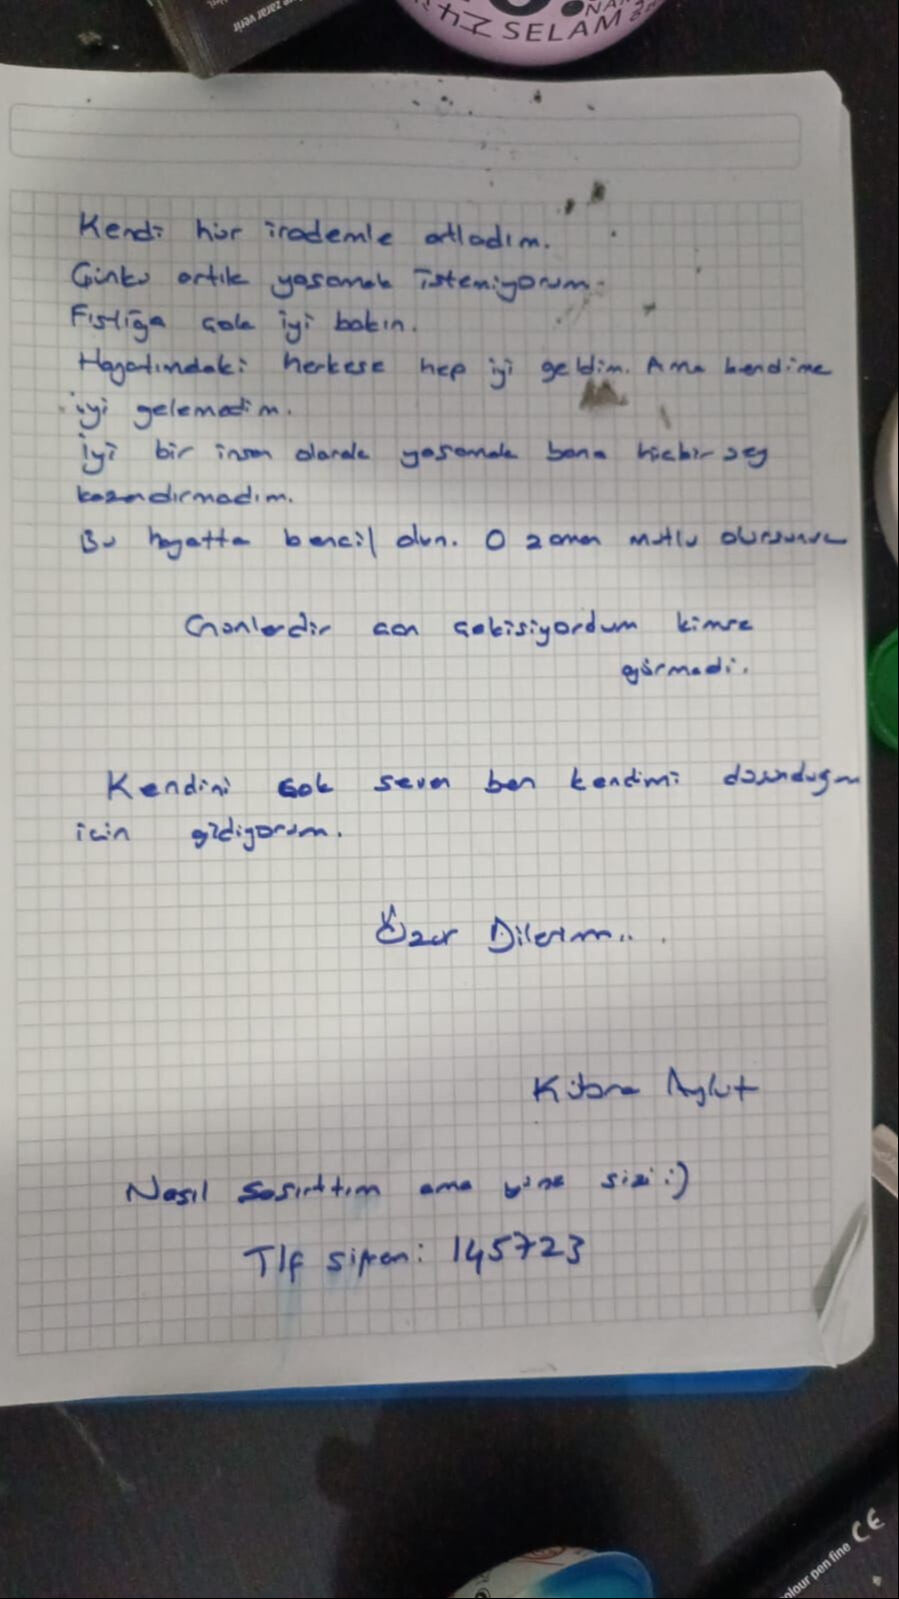 zarar verir
SELAM
Kendi hür irademle atladım.
Çünkü artık yaşamak istemiyorum.
Fıstığa çok iyi bakın.
Hayatımdaki herkese hep iyi geldim. Ama kendime
iyi gelemedim.
İyi bir insan olarak yaşamak bana hiçbir şey
kazandırmadım.
Bu hayatta bencil olun. O zaman mutlu olursunuz
Günlerdir can çekişiyordum kimse
görmedi.
Kendini çok seven ben kendimi
için gidiyorum.
Özür Dilerim...
Nasıl şaşırttım ama yine sizi :)
Tlf şifrem: 145723
colour pen fine CE